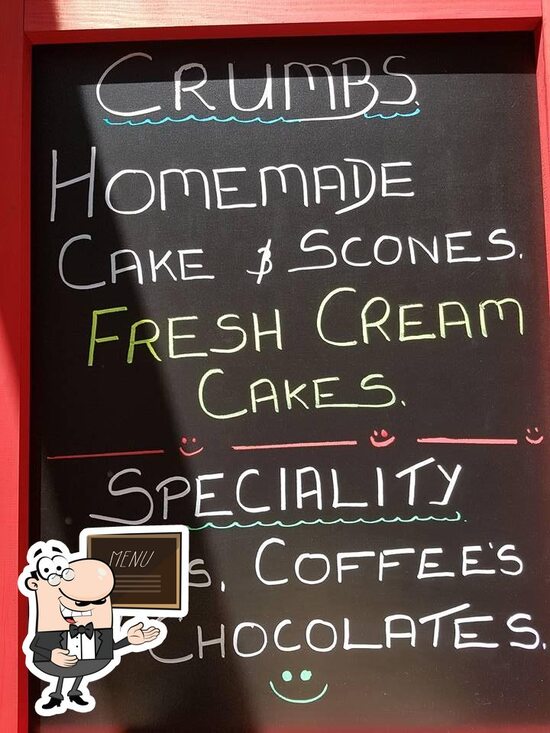 CRUMBS
HOMEMADE
CAKE & SCONES.
FRESH CREAM
CAKES.
SPECIALITY
MENU
S, COFFEE'S
CHOCOLATES.